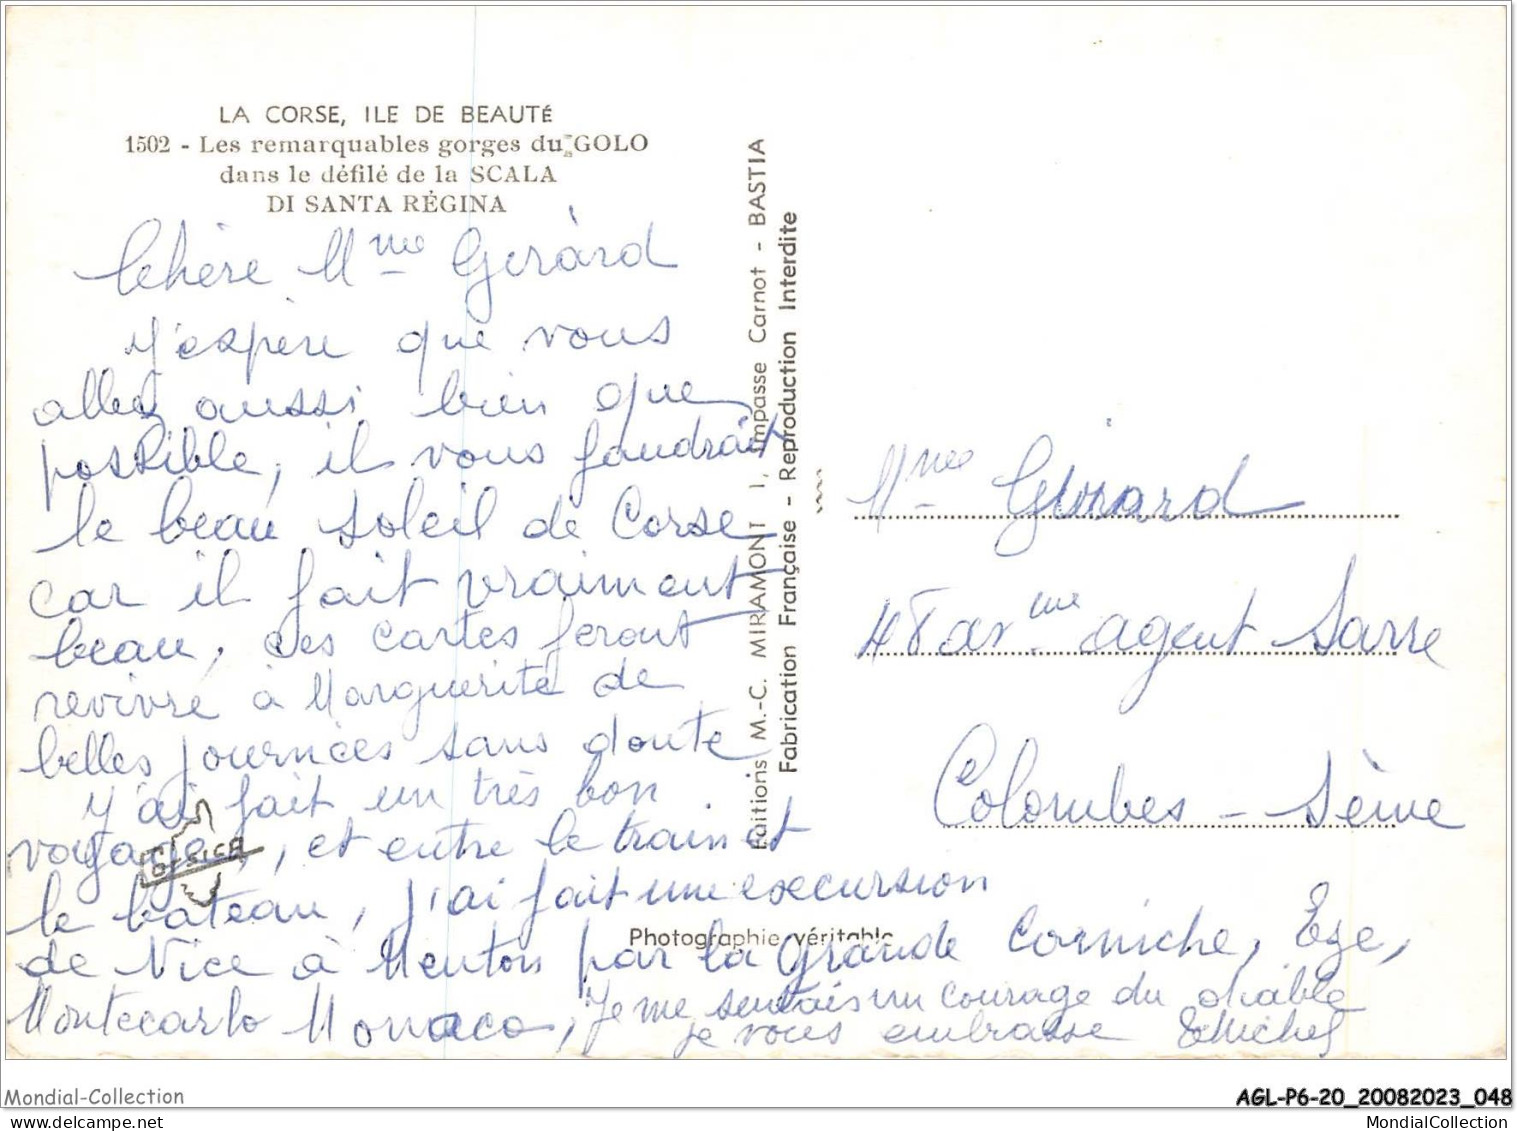 LA CORSE, ILE DE BEAUTÉ
1502 - Les remarquables gorges du GOLO
dans le défilé de la SCALA
DI SANTA RÉGINA
Chère Mme Gérard
J'espère que vous
allez aussi bien que
possible, il vous faudrait
le beau soleil de Corse
car il fait vraiment
beau, ces cartes feront
revivre à Marguerite de
belles journées sans doute
J'ai fait un très bon
voyage, et entre le train et
le bateau, j'ai fait une excursion
de Nice à Menton par la Grande Corniche, Eze,
Montecarlo Monaco, Je me sentais un courage du diable
je vous embrasse
CORSICA
Editions M.-C. MIRAMONT 1, Impasse Carnot - BASTIA
Fabrication Française - Reproduction Interdite
Photographie véritable
Mme Girard
48 av agent Sarre
Colombes - Seine
Mondial-Collection
AGL-P6-20_20082023_048
MondialCollection